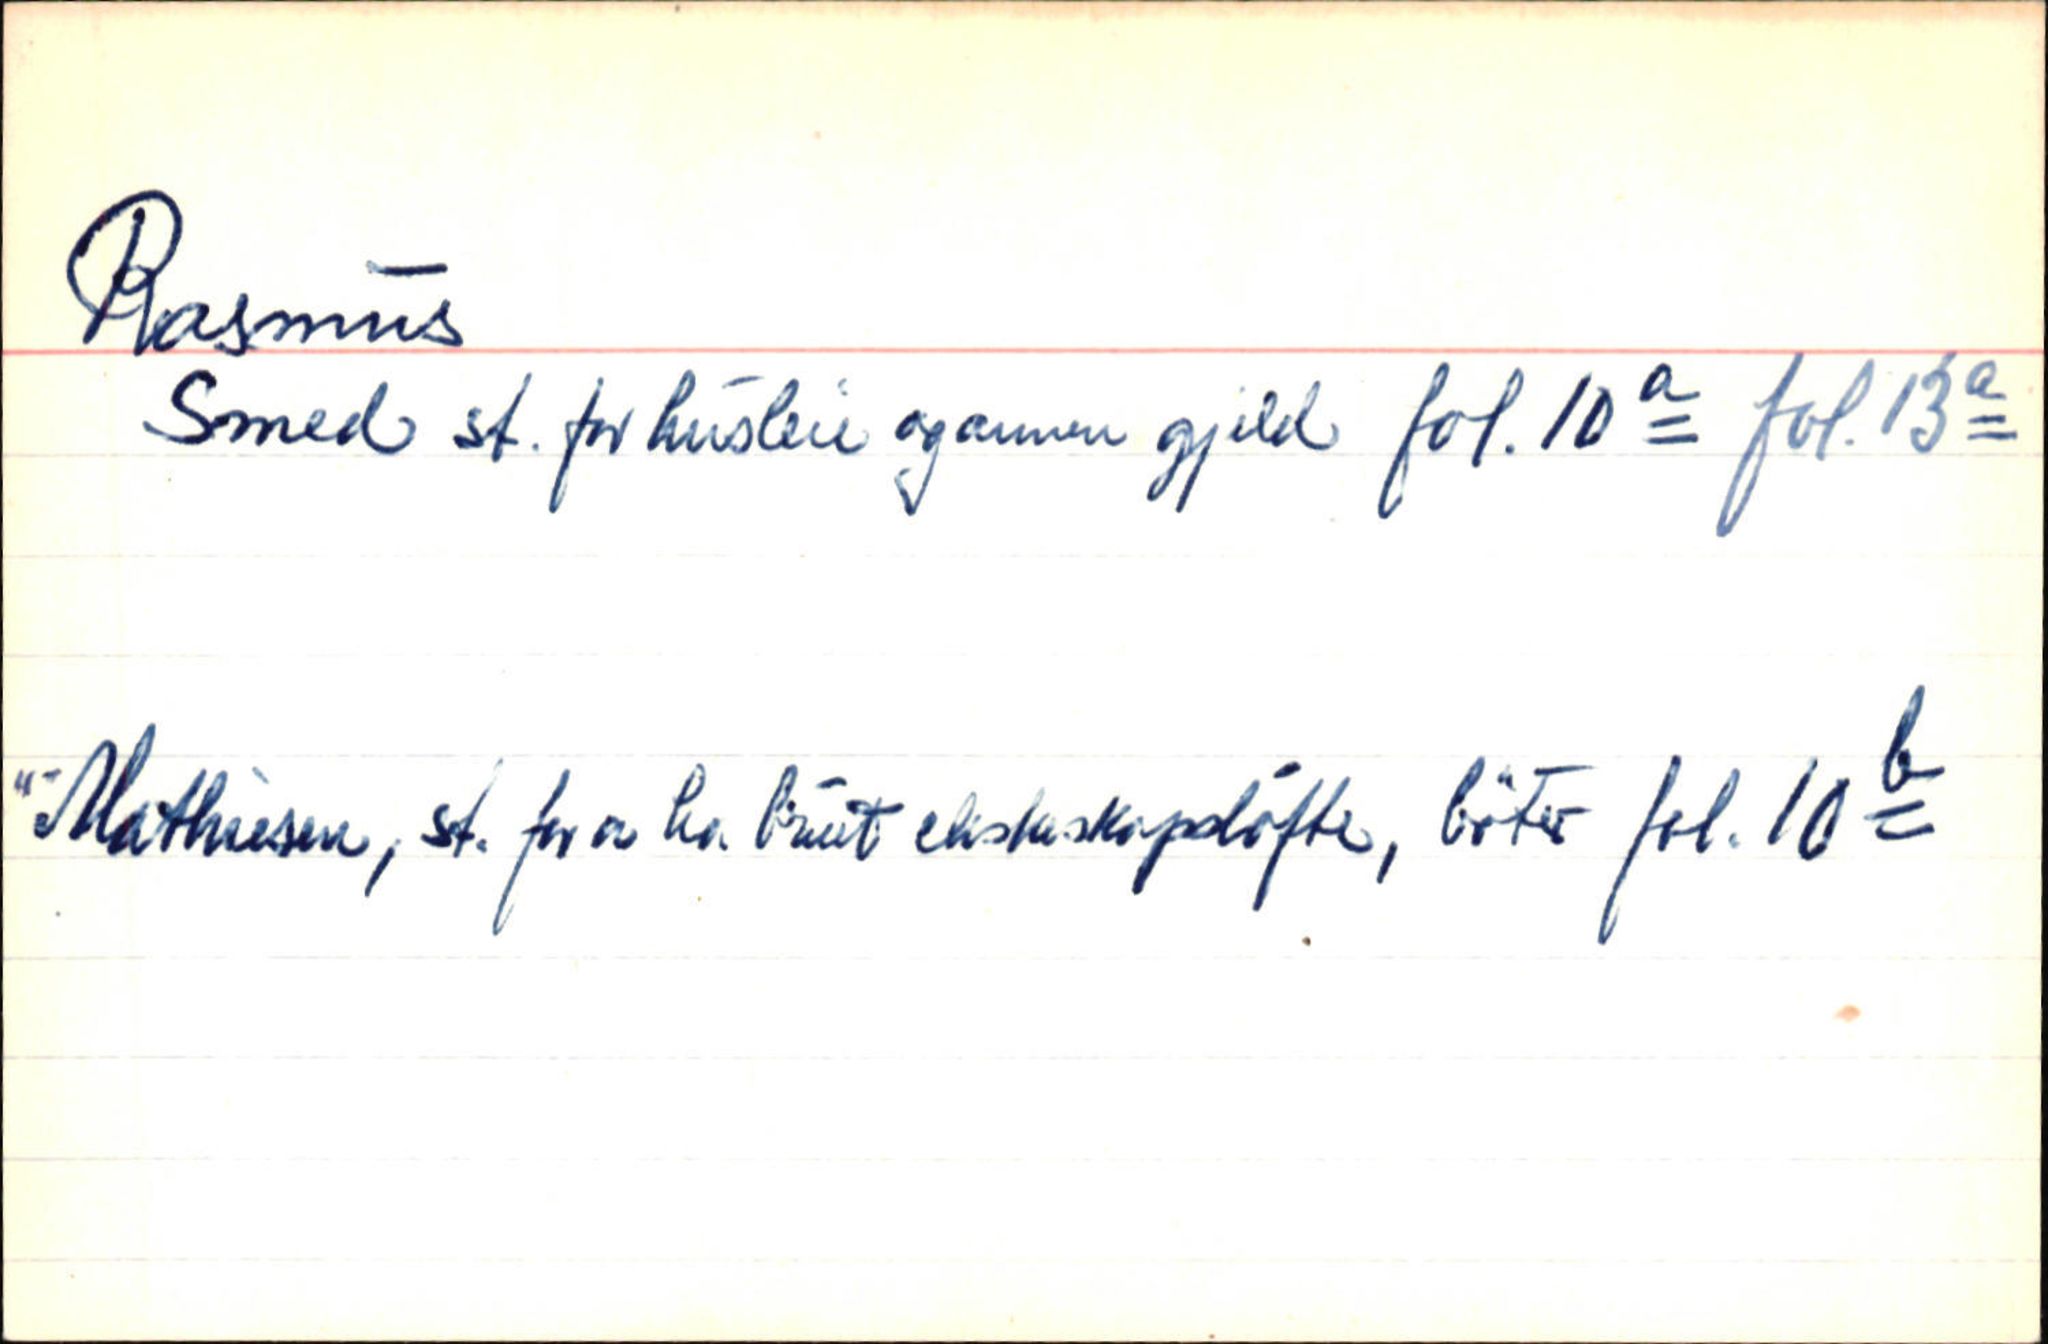 Rasmus
Smed st. for husleie og annen gjeld fol. 10 a fol. 13 a
"- Mathiesen, st. for a ha brut ekteskapslöfte, böter fol. 10 b